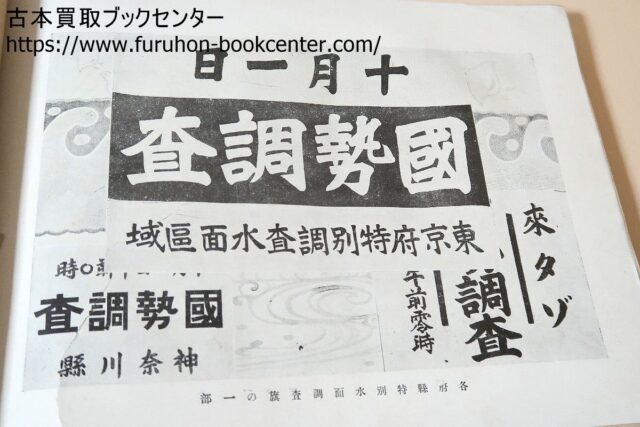 古本買取ブックセンター
https://www.furuhon-bookcenter.com/
十月一日
國勢調査
東京府特別調査水面區域
來タゾ
調査
午前零時
０時
國勢調査
神奈川縣
各府縣特別水面調査旗の一部